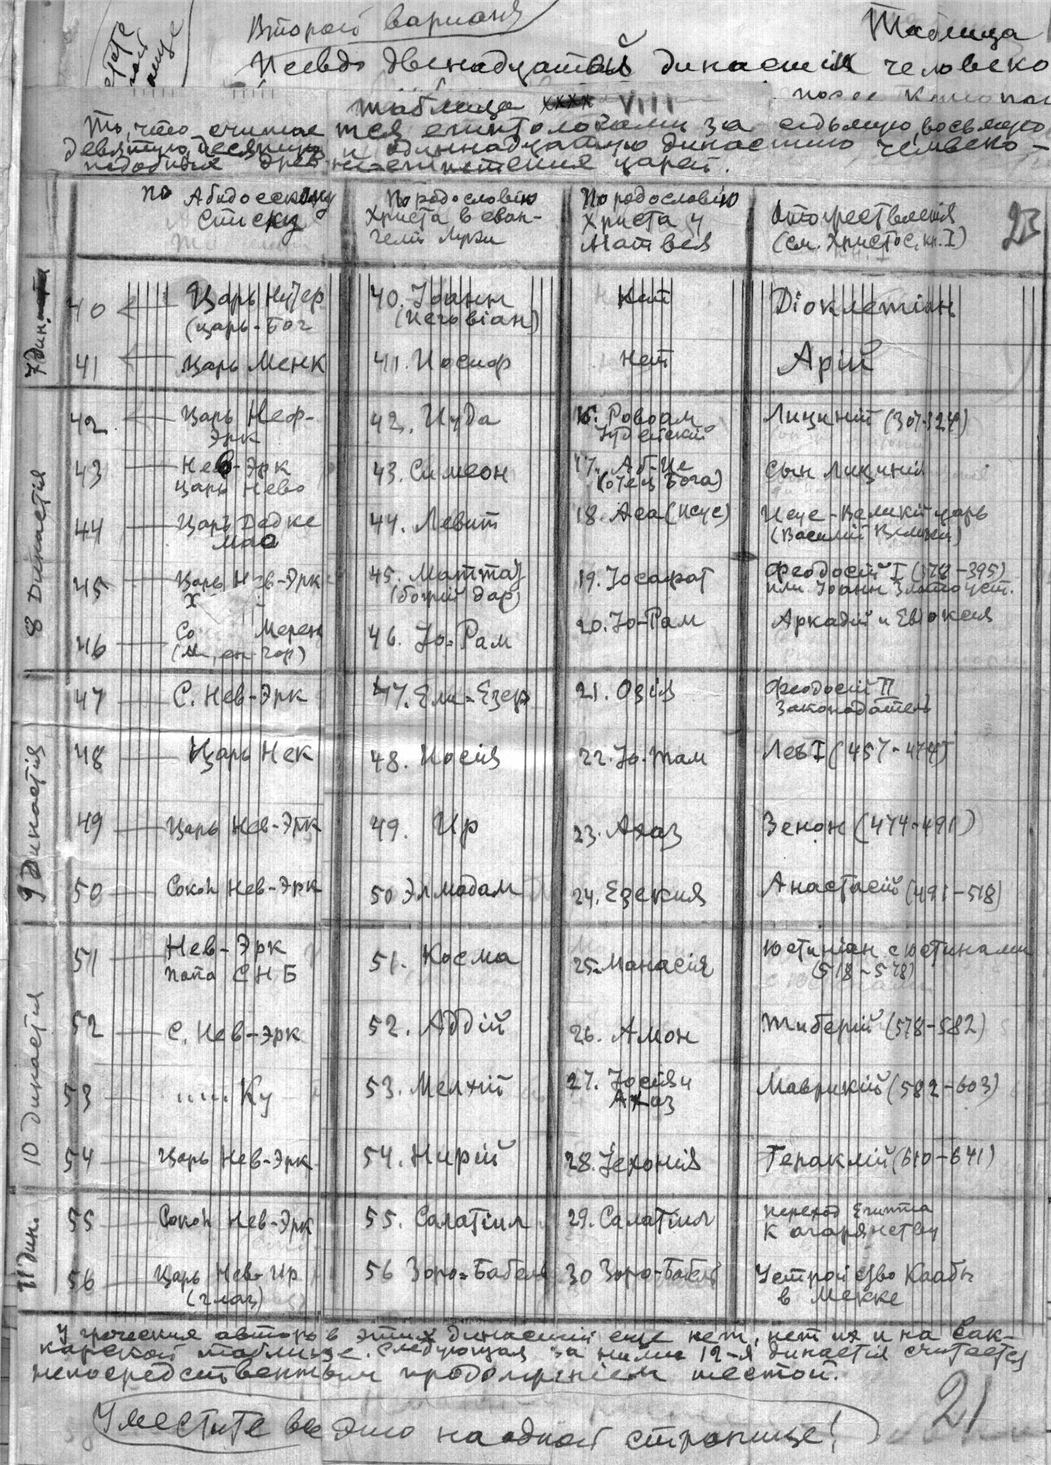 Второй вариант
Таблица
Псевдо двенадцатой династии человеко
таблица хххх VIII
То, что считается египтологами за седьмую, восьмую,
девятую, десятую и одиннадцатую династию человеко-
подобных древнеегипетских царей.
По Абидосскому
списку
По родословию
Христа в еван-
гелии Луки
По родословию
Христа у
Матвея
Отожествления
(см. Христос, кн. I)
23
7 дин.
40
Царь Нутер
(царь-Бог
40. Іоанн
нет
Діоклетіан
41
Царь Менк
41. Иосиф
нет
Арій
8 Династія
42
Царь Неф-
Эрк
42. Иуда
16. Ровоам
Іудейскій
Лициній (307-324)
43
Нев-Эрк
царь Нево
43. Симеон
17. Аб-Іе
(отец Бога)
Сын Лицинія
44
Царь Дедке
маа
44. Левит
18. Аса (Исус)
Исус-Великій царь
(Василій Великій)
45
Царь Нев-Эрк
Х
45. Маттаѳ
(божій дар)
19. Іосафат
Феодосій I (378-395)
или Іоанн Златоуст.
46
Со Мерен
46. Іо-Рам
20. Іо-Рам
Аркадій и Евдоксія
47
С. Нев-Эрк
47. Ели-Езер
21. Озія
Феодосій II
Законодатель
9 Династія
48
Царь Нек
48. Иосія
22. Іо-там
Лев I (457-474)
49
Царь Нев-Эрк
49. Ир
23. Ахаз
Зенон (474-491)
50
Сокол Нев-Эрк
50 Элмодам
24. Езекия
Анастасій (491-518)
10 династія
51
Нев-Эрк
папа СНБ
51. Косма
25. Манасія
Юстиніан с Юстинами
(518-578)
52
С. Нев-Эрк
52. Аддій
26. Амон
Тиберій (578-582)
53
.....Ку
53. Мелхій
27. Іосія и
Ахаз
Маврикій (582-603)
54
Царь Нев-Эрк
54. Нирій
28. Іехонія
Гераклій (610-641)
11 дин.
55
Сокол Нев-Эрк
55. Салатіил
29. Салатіил
переход Египта
к агарянству
56
Царь Нев-Ир
(глаз)
56 Зоро-Бабель
30 Зоро-Бабель
Устройство Каабы
в Мекке
У греческих авторов этих династий еще нет, нет их и на Сак-
карской таблице. Следующая за ними 12-я династія считается
непосредственным продолженіем шестой.
Уместите все это на одной странице!
21